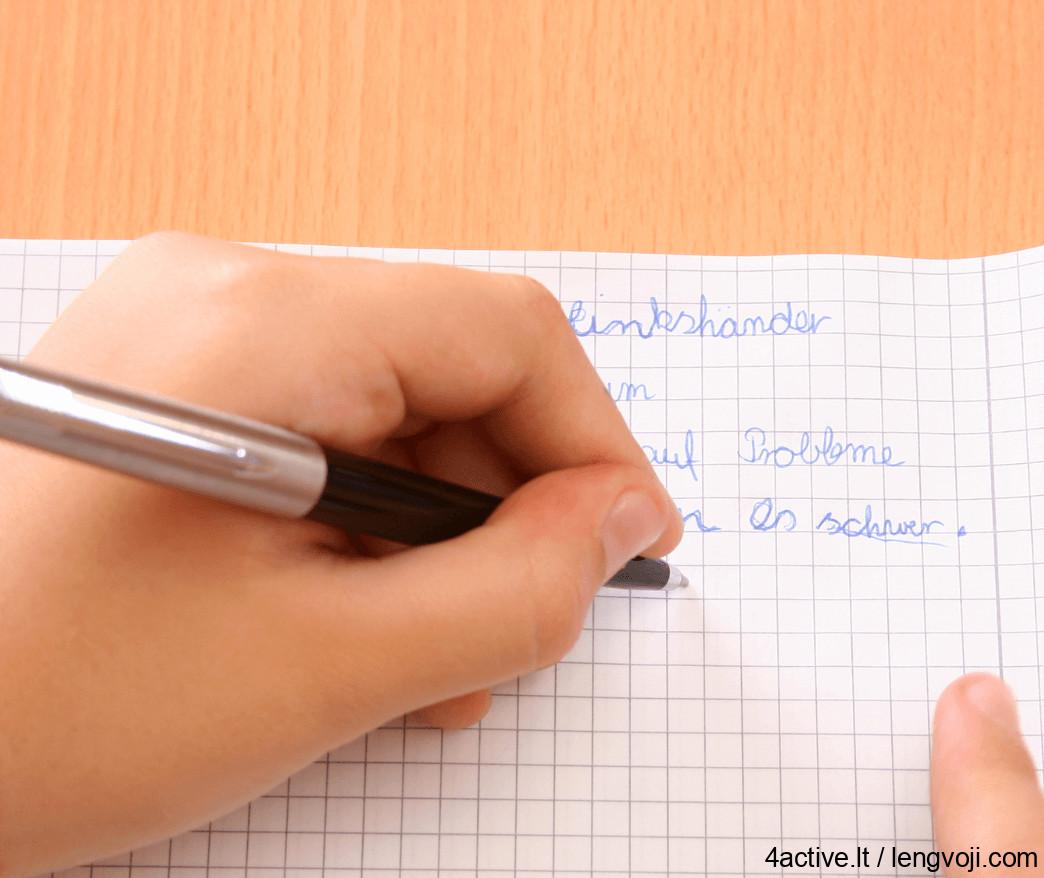 Linkshänder
um
auf Probleme
n es schwer.
4active.lt / lengvoji.com